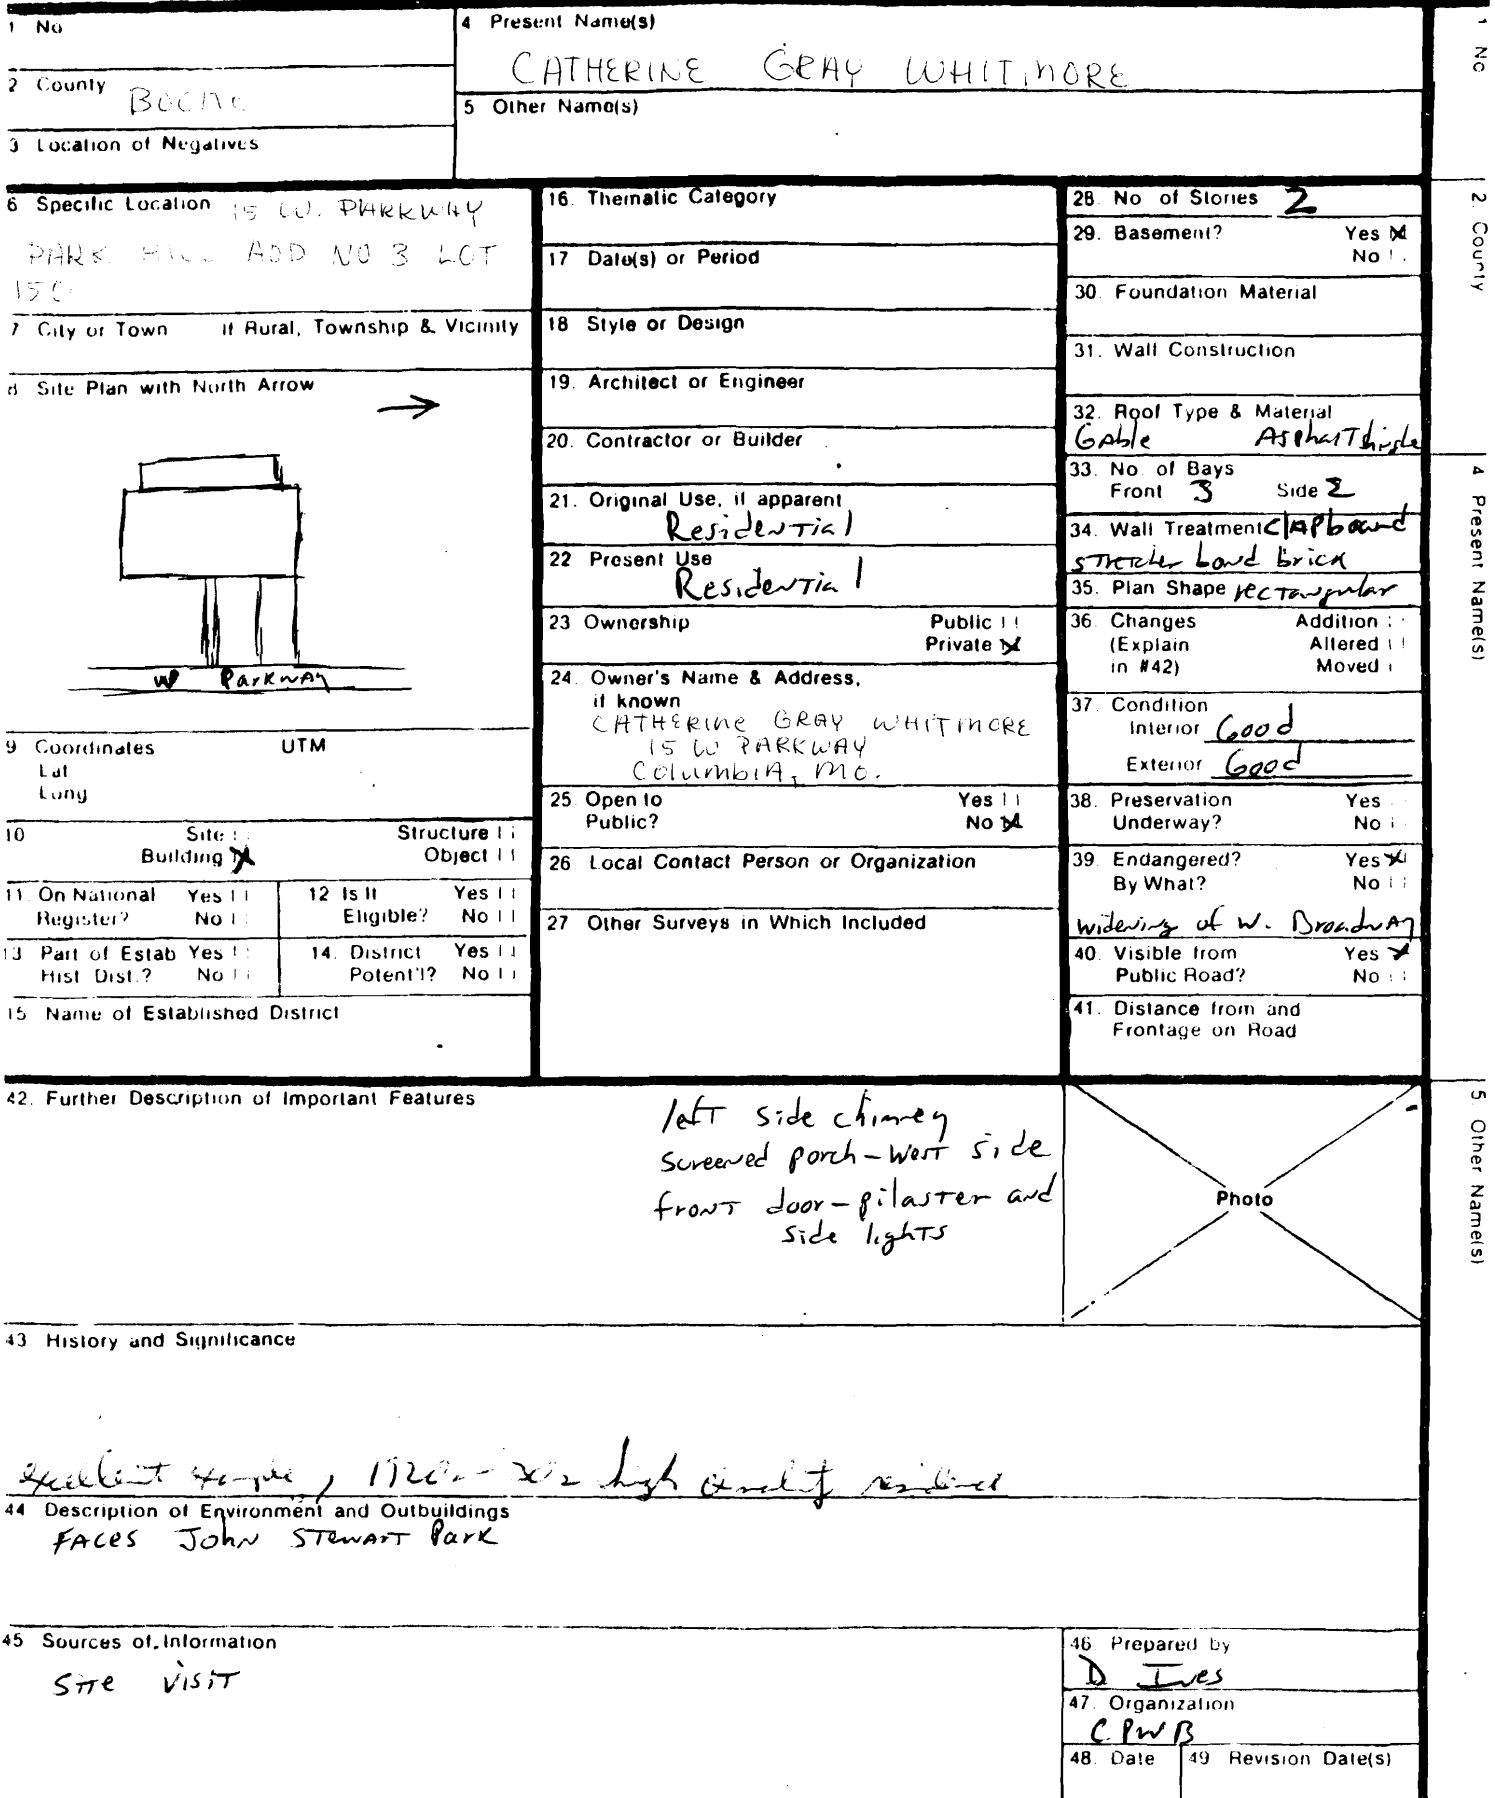 1 No
4 Present Name(s)
CATHERINE GRAY WHITMORE
2 County
BOONE
5 Other Name(s)
3 Location of Negatives
6 Specific Location 15 W. PARKWAY
PARK HILL ADD NO 3 LOT
150
7 City or Town If Rural, Township & Vicinity
8 Site Plan with North Arrow
W Parkway
9 Coordinates UTM
Lat
Long
10 Site
Structure
Building X
Object
11. On National Register? Yes No
12 Is It Eligible? Yes No
13 Part of Estab Hist Dist.? Yes No
14. District Potent'l? Yes No
15 Name of Established District
16. Thematic Category
17 Date(s) or Period
18 Style or Design
19. Architect or Engineer
20. Contractor or Builder
21. Original Use, if apparent
Residential
22 Present Use
Residential
23 Ownership Public
Private X
24. Owner's Name & Address,
if known
CATHERINE GRAY WHITMORE
15 W PARKWAY
Columbia, MO.
25 Open to Yes
Public? No X
26. Local Contact Person or Organization
27 Other Surveys in Which Included
28. No of Stories 2
29. Basement? Yes X
No
30. Foundation Material
31. Wall Construction
32. Roof Type & Material
Gable Asphalt shingle
33. No. of Bays
Front 3 Side 2
34. Wall Treatment Clapboard
stretcher bond brick
35. Plan Shape rectangular
36. Changes Addition
(Explain Altered
in #42) Moved
37. Condition
Interior Good
Exterior Good
38. Preservation Yes
Underway? No
39. Endangered? Yes X
By What? No
widening of W. Broadway
40. Visible from Yes X
Public Road? No
41. Distance from and
Frontage on Road
42. Further Description of Important Features
left side chimney
screened porch - West side
front door - pilaster and
side lights
Photo
43 History and Significance
excellent example, 1920s-30s high quality residence
44 Description of Environment and Outbuildings
FACES John Stewart Park
45 Sources of Information
Site visit
46 Prepared by
D Ives
47. Organization
C PW B
48. Date
49 Revision Date(s)
1 No
2. County
4 Present Name(s)
5 Other Name(s)